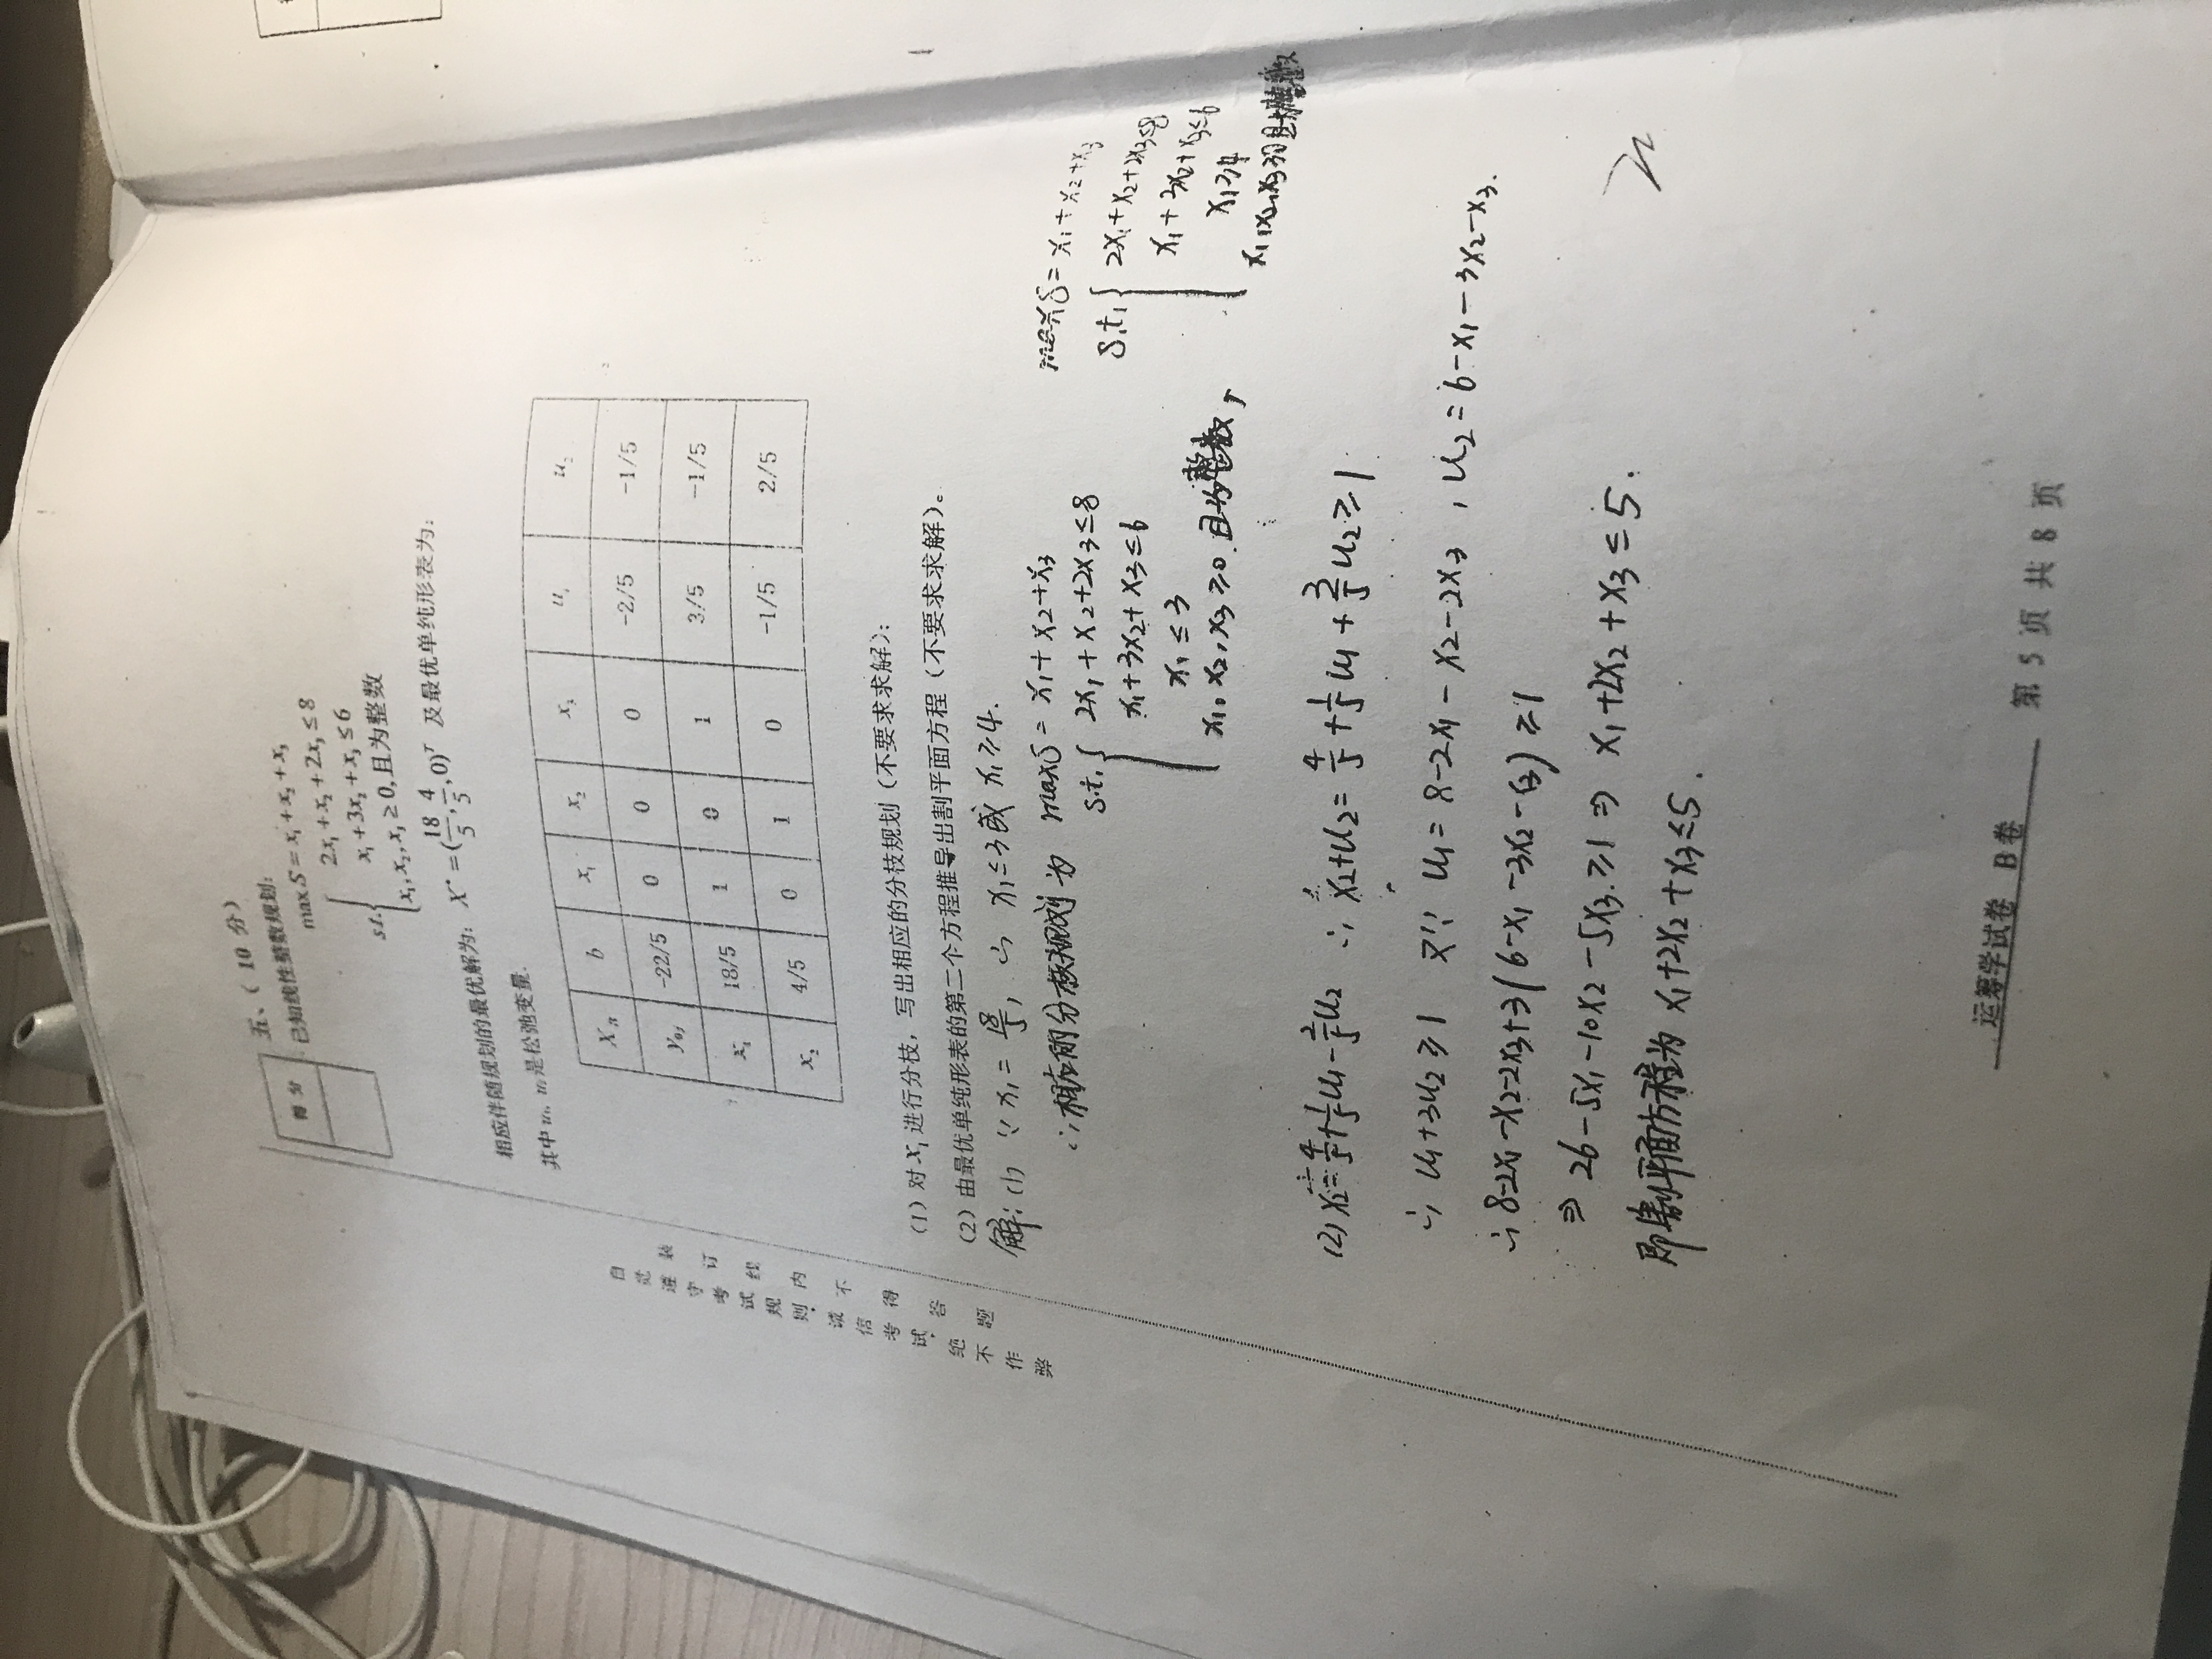 五、( 10 分)
得 分
已知线性整数规划:
max S = x₁ + x₂ + x₃
s.t. { 2x₁ + x₂ + 2x₃ ≤ 8
x₁ + 3x₂ + x₃ ≤ 6
x₁, x₂, x₃ ≥ 0, 且为整数
相应伴随规划的最优解为: X* = (18/5, 4/5, 0)ᵀ 及最优单纯形表为:
其中 u₁, u₂ 是松弛变量.
X_B b x₁ x₂ x₃ u₁ u₂
y₀ⱼ -22/5 0 0 0 -2/5 -1/5
x₁ 18/5 1 0 1 3/5 -1/5
x₂ 4/5 0 1 0 -1/5 2/5
自觉遵守考试规则,诚信考试,绝不作弊
装订线内不得答题
(1) 对 x₁ 进行分枝,写出相应的分枝规划(不要求求解);
(2) 由最优单纯形表的第二个方程推导出割平面方程(不要求求解)。
解: (1) ∵ x₁ = 18/5, ∴ x₁ ≤ 3 或 x₁ ≥ 4.
∴ 相应的分枝规划为 max S = x₁ + x₂ + x₃
s.t. { 2x₁ + x₂ + 2x₃ ≤ 8
x₁ + 3x₂ + x₃ ≤ 6
x₁ ≤ 3
x₁, x₂, x₃ ≥ 0 且为整数,
max S = x₁ + x₂ + x₃
s.t. { 2x₁ + x₂ + 2x₃ ≤ 8
x₁ + 3x₂ + x₃ ≤ 6
x₁ ≥ 4
x₁, x₂, x₃ ≥ 0 且为整数
(2) x₂ = 4/5 + 1/5 u₁ - 2/5 u₂ ∴ x₂ + u₂ = 4/5 + 1/5 u₁ + 3/5 u₂ ≥ 1
∴ u₁ + 3u₂ ≥ 1 又∵ u₁ = 8 - 2x₁ - x₂ - 2x₃ , u₂ = 6 - x₁ - 3x₂ - x₃.
∴ 8 - 2x₁ - x₂ - 2x₃ + 3(6 - x₁ - 3x₂ - x₃) ≥ 1
⇒ 26 - 5x₁ - 10x₂ - 5x₃ ≥ 1 ⇒ x₁ + 2x₂ + x₃ ≤ 5.
即割平面方程为 x₁ + 2x₂ + x₃ ≤ 5.
运筹学试卷 B 卷 第 5 页 共 8 页